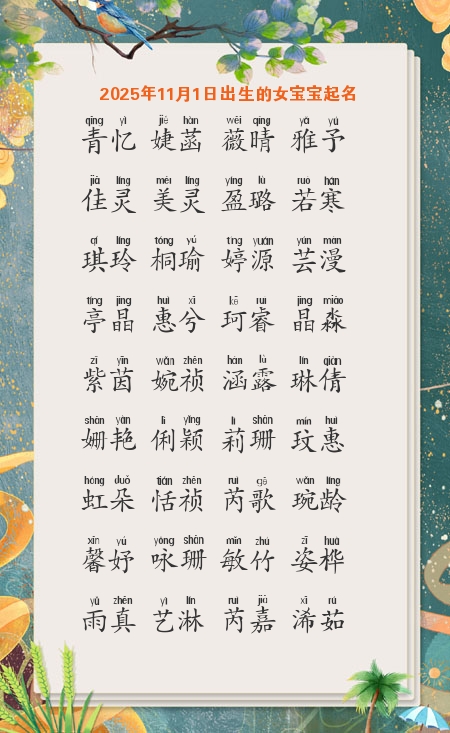 2025年11月1日出生的女宝宝起名
qīng yì jié hàn wēi qíng yǎ yú
青忆 婕菡 薇晴 雅予
jiā líng měi líng yíng lù ruò hán
佳灵 美灵 盈璐 若寒
qí líng tóng yú tíng yuán yún màn
琪玲 桐瑜 婷源 芸漫
tíng jīng huì xī kē ruì jīng miǎo
亭晶 惠兮 珂睿 晶淼
zǐ yīn wǎn zhēn hán lù lín qiàn
紫茵 婉祯 涵露 琳倩
shān yàn lì yǐng lì shān mín huì
姗艳 俐颖 莉珊 玟惠
hóng duǒ tián zhēn ruì gē wǎn líng
虹朵 恬祯 芮歌 琬龄
xīn yú yǒng shān mǐn zhú zī huà
馨妤 咏珊 敏竹 姿桦
yǔ zhēn yì lín ruì jiā xī rú
雨真 艺淋 芮嘉 浠茹